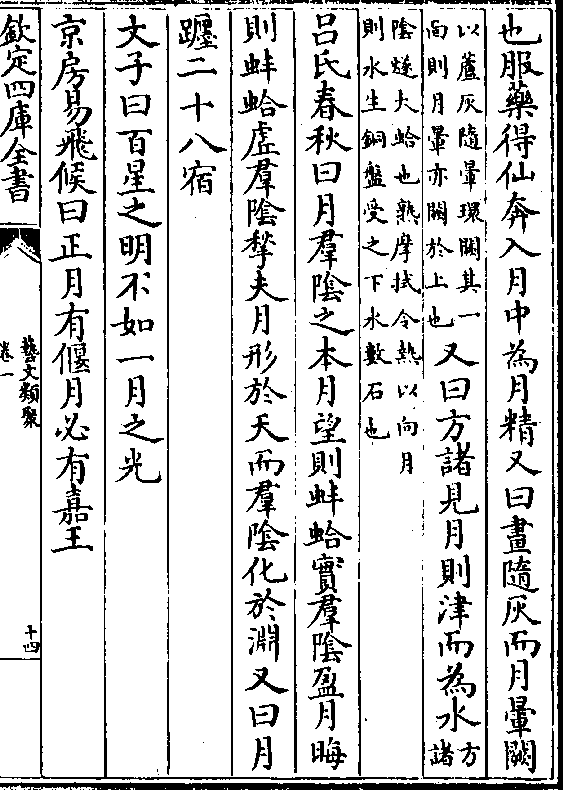 也服藥得仙奔入月中為月精又曰畫隨灰而月暈闕
以蘆灰隨暈環闕其一
面則月暈亦闕於上也
又曰方諸見月則津而為水
方
諸
陰燧大蛤也熟摩拭令熱以向月
則水生銅盤受之下水數石也
呂氏春秋曰月羣陰之本月望則蚌蛤實羣陰盈月晦
則蚌蛤虛羣陰揫夫月形於天而羣陰化於淵又曰月
躔二十八宿
文子曰百星之明不如一月之光
京房易飛候曰正月有偃月必有嘉王
欽定四庫全書
藝文類聚
卷一
十四